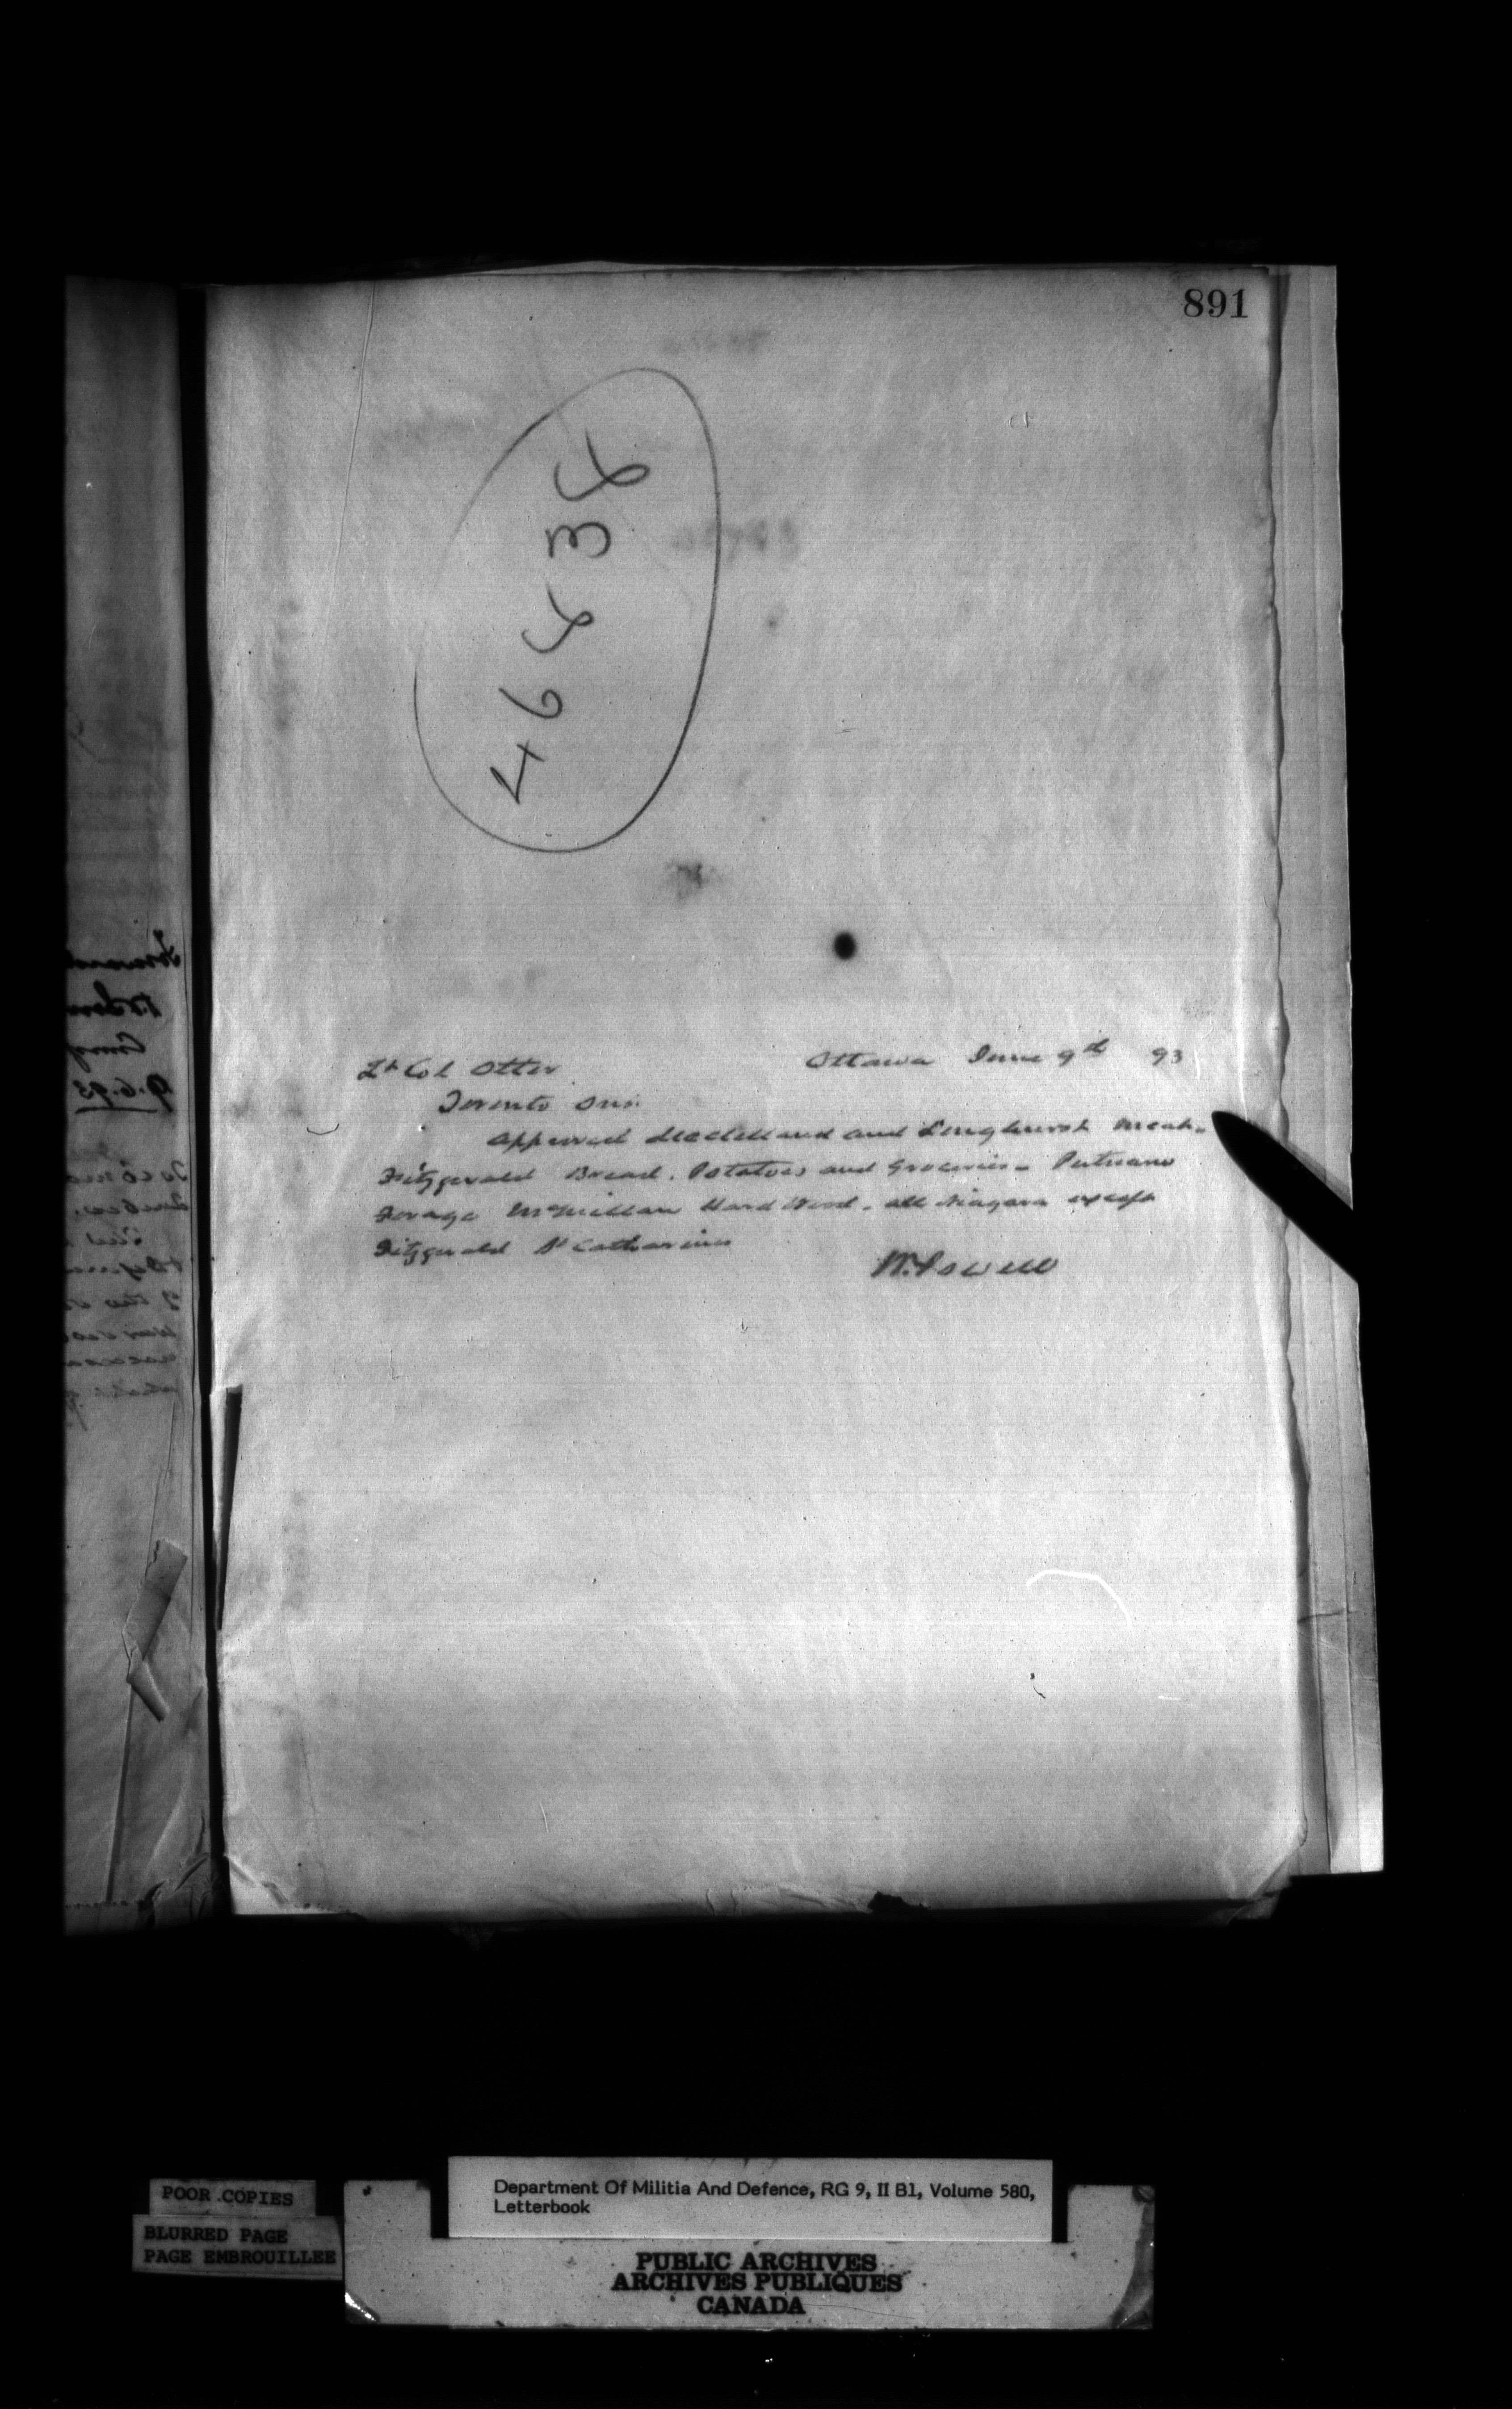 891
Lt Col Otter Ottawa June 9th 93
Toronto Ont.
Approved and Longhurst Meat.
Fitzgerald Bread. Potatoes and Groceries - Putnam
Forage McMillan Hard Wood. all Niagara except
Fitzgerald St Catharines
W. Powell
POOR COPIES
BLURRED PAGE
PAGE EMBROUILLEE
Department Of Militia And Defence, RG 9, II B1, Volume 580,
Letterbook
PUBLIC ARCHIVES
ARCHIVES PUBLIQUES
CANADA